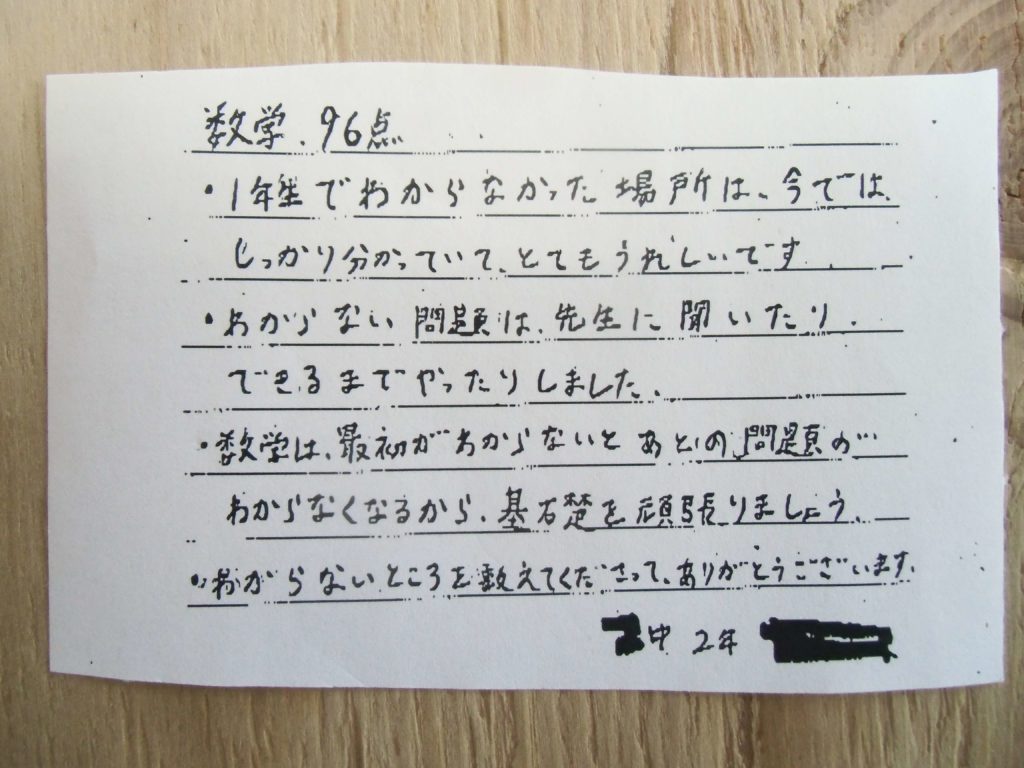 数学. 96点
・1年生でわからなかった場所は、今では、
しっかり分かっていて、とてもうれしいです
・わからない問題は、先生に聞いたり、
できるまでやったりしました。
・数学は、最初がわからないとあとの問題が
わからなくなるから、基礎を頑張りましょう。
・わからないところを教えてくださって、ありがとうございます。
中 2年